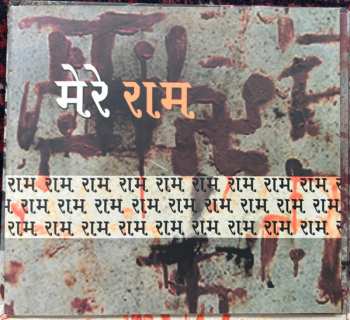 मेरे राम
राम राम राम राम राम राम राम राम राम
राम राम राम राम राम राम राम राम
राम राम राम राम राम राम राम राम राम